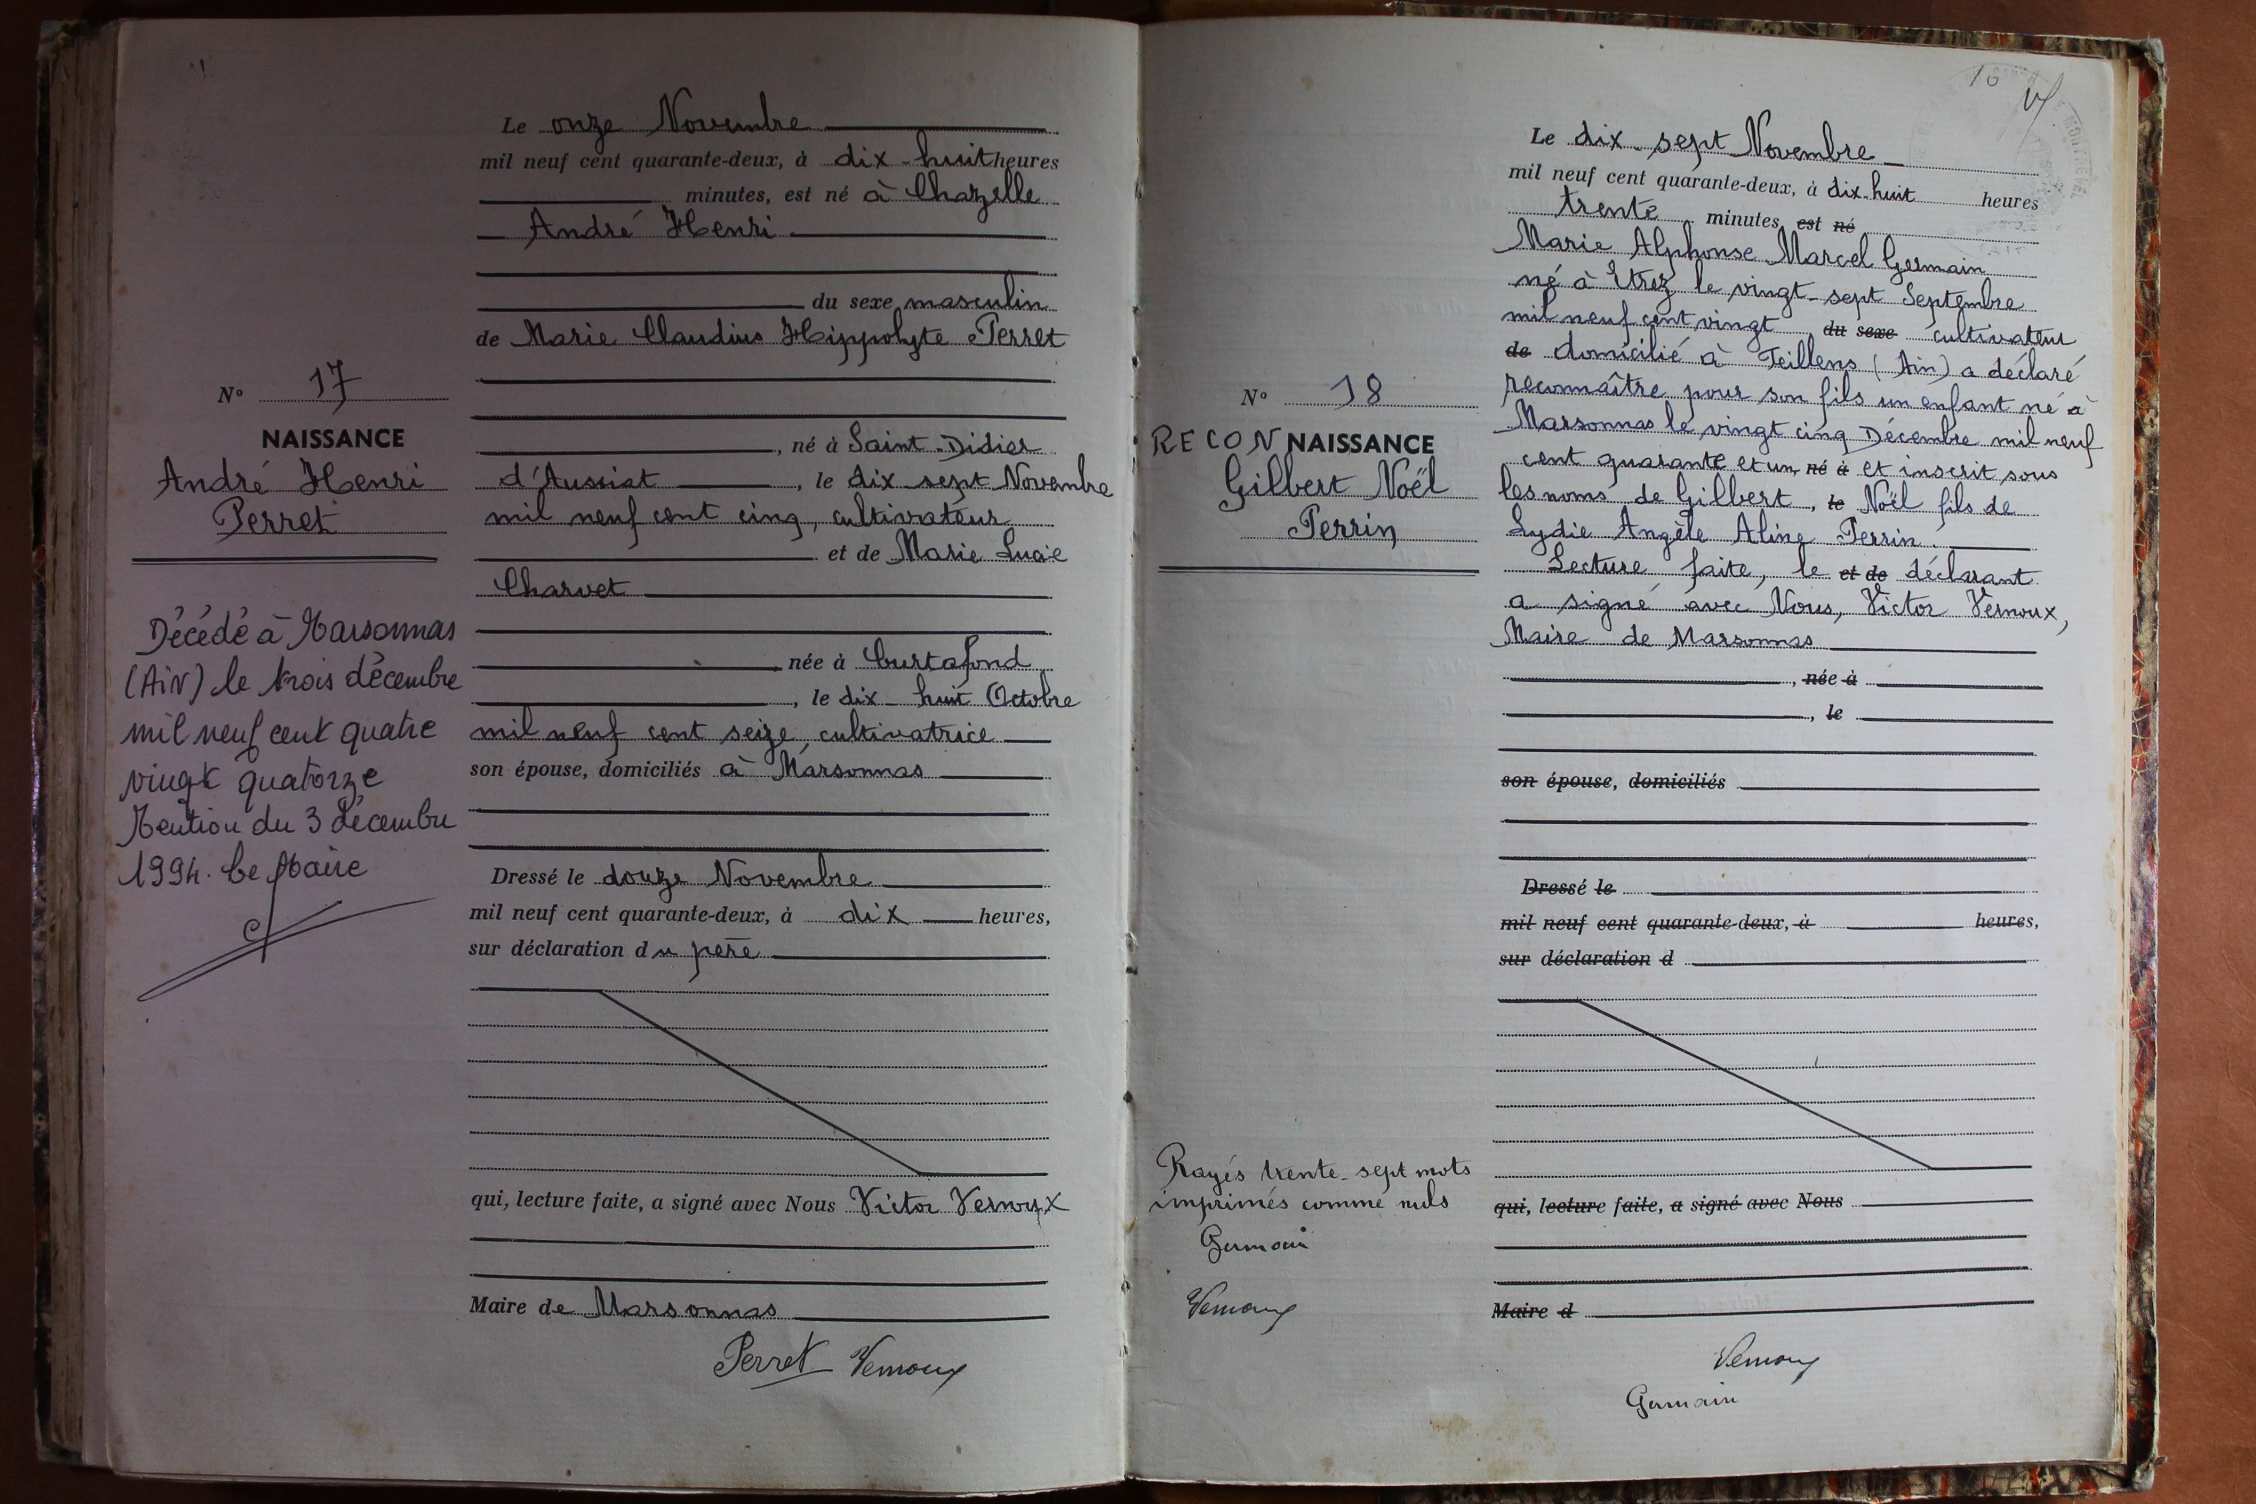 N° 17
NAISSANCE
André Henri
Perret
Décédé à Marsonnas
(AiN) le trois décembre
mil neuf cent quatre
vingt quatorze
Mention du 3 décembre
1994. Le Maire
Le onze Novembre
mil neuf cent quarante-deux, à dix-huit heures
minutes, est né à Chazelle
André Henri
du sexe masculin
de Marie Claudius Hippolyte Perret
, né à Saint-Didier
d'Aussiat, le dix-sept Novembre
mil neuf cent cinq, cultivateur
et de Marie Lucie
Charvet
née à Curtafond
, le dix-huit Octobre
mil neuf cent seize, cultivatrice
son épouse, domiciliés à Marsonnas
Dressé le douze Novembre
mil neuf cent quarante-deux, à dix heures,
sur déclaration du père
qui, lecture faite, a signé avec Nous Victor Vernoux
Maire de Marsonnas
Perret Vernoux
16
N° 18
RECONNAISSANCE
Gilbert Noël
Perrin
Rayés trente-sept mots
imprimés comme nuls
Germain
Vernoux
Le dix-sept Novembre
mil neuf cent quarante-deux, à dix-huit heures
trente minutes, est né
Marie Alphonse Marcel Germain
né à Etrez le vingt-sept Septembre
mil neuf cent vingt du sexe cultivateur
de domicilié à Feillens (Ain) a déclaré
reconnaître pour son fils un enfant né à
Marsonnas le vingt cinq Décembre mil neuf
cent quarante et un, né à et inscrit sous
les noms de Gilbert, le Noël fils de
Lydie Angèle Aline Perrin.
Lecture faite, le et de déclarant
a signé avec Nous, Victor Vernoux,
Maire de Marsonnas
, née à
, le
son épouse, domiciliés
Dressé le
mil neuf cent quarante-deux, à heures,
sur déclaration d
qui, lecture faite, a signé avec Nous
Maire d
Vernoux
Germain